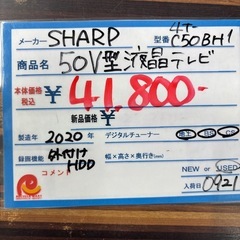 メーカー SHARP 型番 4T-C50BH1
商品名 50V型液晶テレビ
本体価格 税込 ¥ 41,800-
新品価格 ¥
製造年 2020年 デジタルチューナー 地上 BS CS
録画機能 外付けHDD 幅×高さ×奥行き(mm)
コメント NEW or USED
入荷日 0921